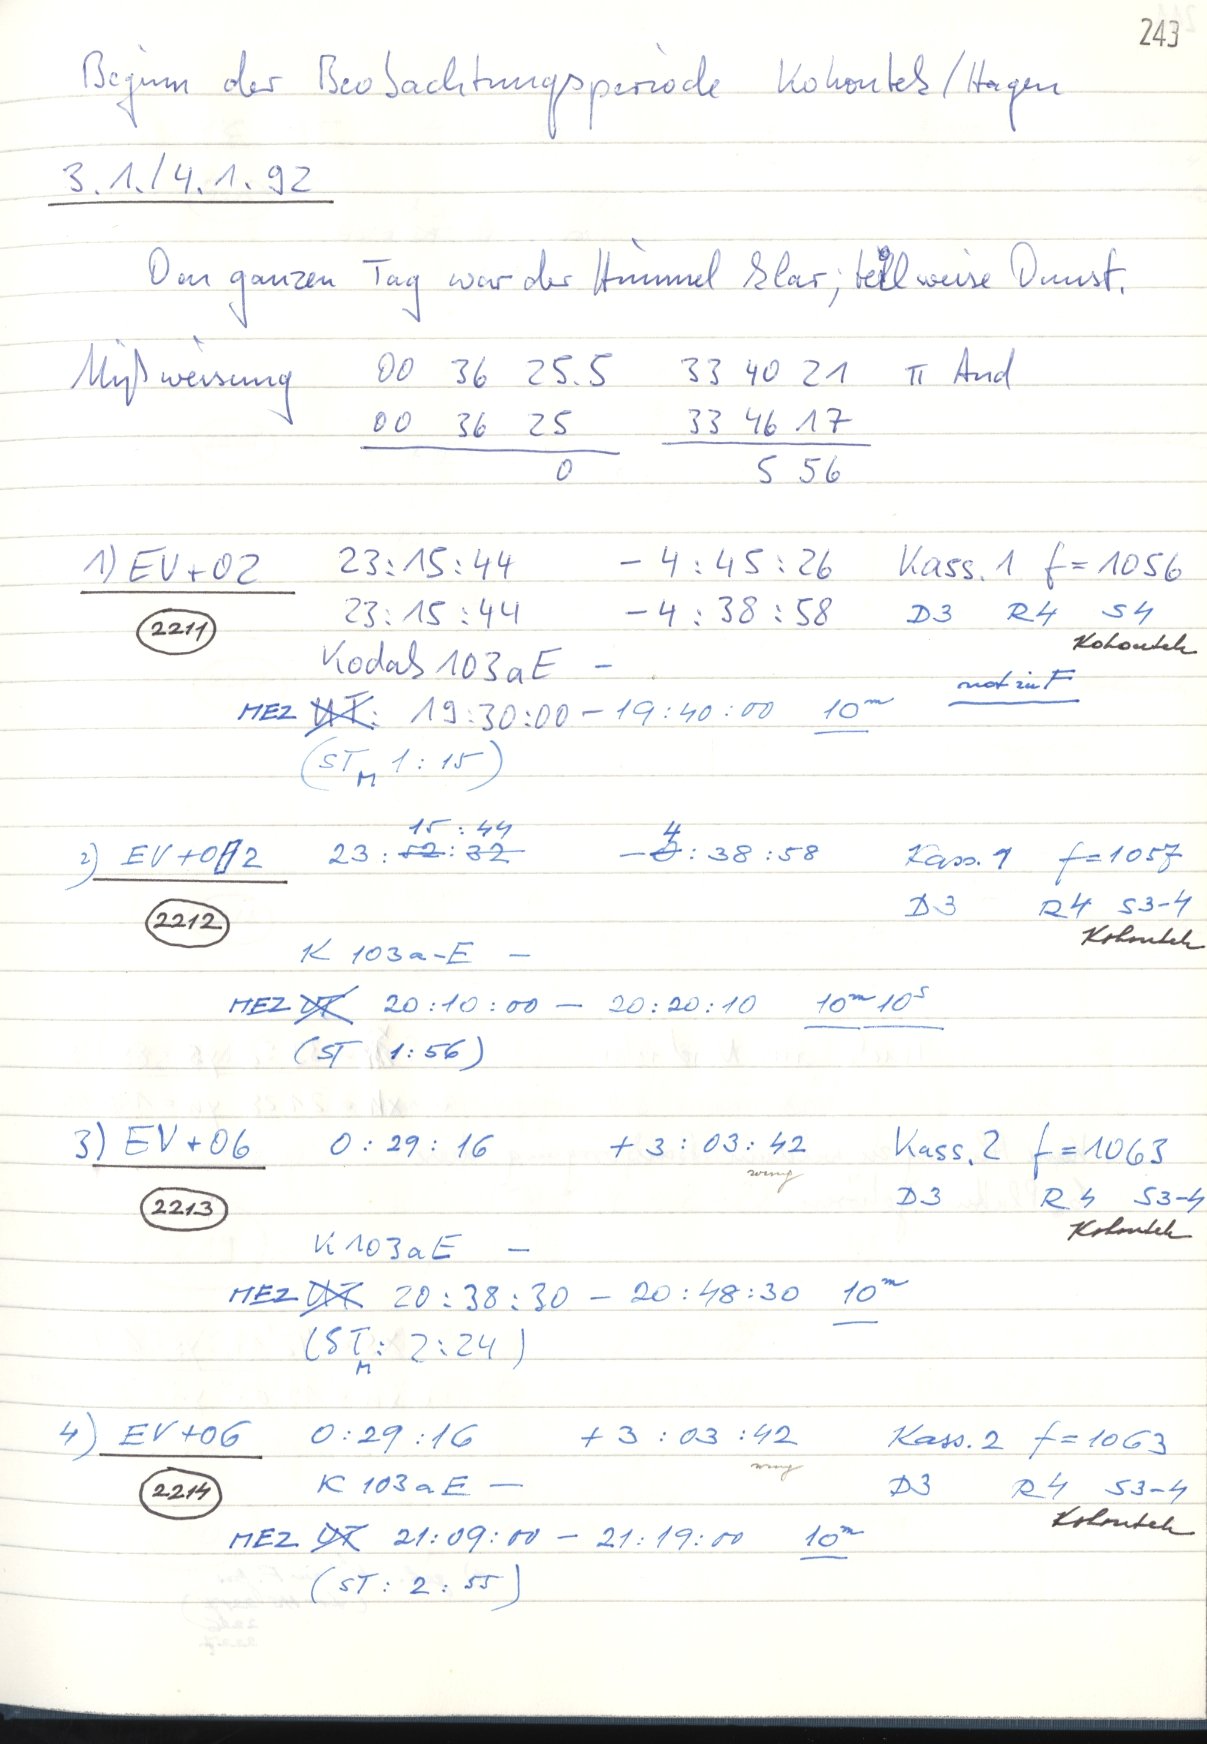 243
Beginn der Beobachtungsperiode Kohoutek/Hagen
3.1./4.1.92
Den ganzen Tag war der Himmel klar; teilweise Dunst.
Mißweisung 00 36 25.5 33 40 21 π And
00 36 25 33 46 17
0 5 56
1) EV+02 23:15:44 -4:45:26 Kass. 1 f=1056
2211 23:15:44 -4:38:58 D3 R4 S4
Kohoutek
Kodak 103aE -
not in F
MEZ UT: 19:30:00 - 19:40:00 10m
(STM 1:15)
15:44 4
2) EV+02 23:52:32 -0:38:58 Kass. 1 f=1057
2212 D3 R4 S3-4
Kohoutek
K 103a-E -
MEZ UT 20:10:00 - 20:20:10 10m 10s
(ST 1:56)
3) EV+06 0:29:16 +3:03:42 Kass. 2 f=1063
2213 D3 R4 S3-4
Kohoutek
K 103aE -
MEZ UT 20:38:30 - 20:48:30 10m
(STM: 2:24)
4) EV+06 0:29:16 +3:03:42 Kass. 2 f=1063
2214 K 103aE - D3 R4 S3-4
Kohoutek
MEZ UT 21:09:00 - 21:19:00 10m
(ST: 2:55)